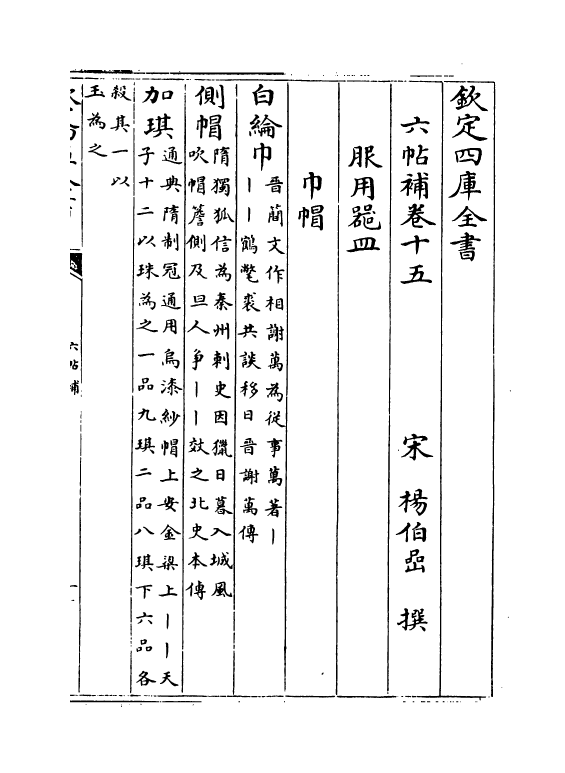 欽定四庫全書
六帖補卷十五
宋 楊伯嵒 撰
服用器皿
巾帽
白綸巾 晉簡文作相謝萬為從事萬著丨
丨丨鶴氅裘共談移日晉謝萬傳
側帽 隋獨狐信為秦州刺史因獵日暮入城風
吹帽簷側及旦人爭丨丨效之北史本傳
加琪 通典隋制冠通用烏漆紗帽上安金梁上丨丨天
子十二以珠為之一品九琪二品八琪下六品各
殺其一以
玉為之
六帖補
一